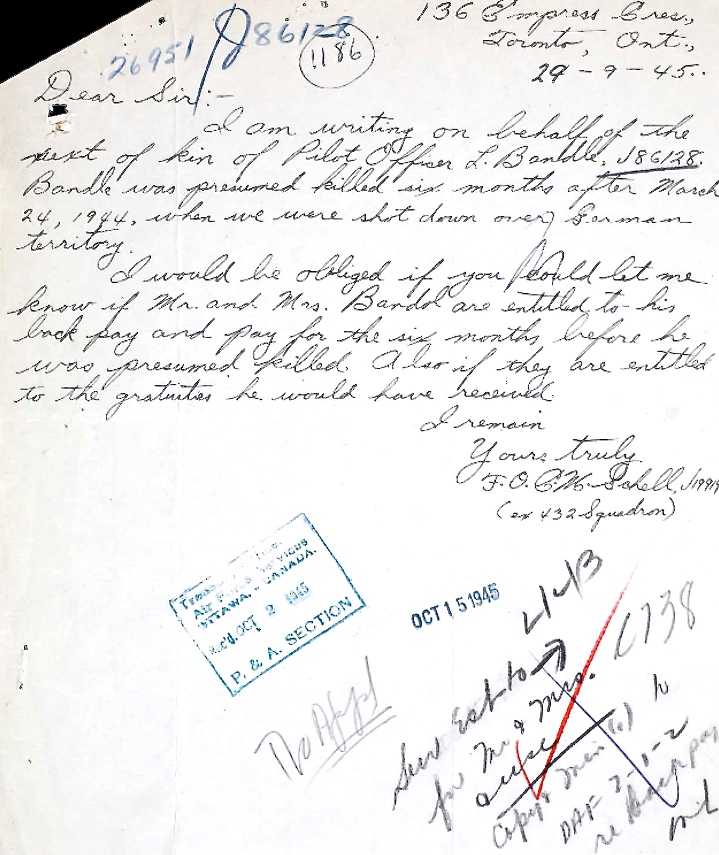 136 Empress Cres.,
Toronto, Ont.,
29-9-45.
26951 J86128
1186
Dear Sir:-
I am writing on behalf of the
next of kin of Pilot Officer L. Bandle, J86128.
Bandle was presumed killed six months after March
24, 1944, when we were shot down over German
territory.
I would be obliged if you could let me
know if Mr. and Mrs. Bandol are entitled to his
back pay and pay for the six months before he
was presumed killed. Also if they are entitled
to the gratuities he would have received.
I remain
Yours truly
F.O. C.M. Schell, J19919
(ex 432 Squadron)
Air Force Services
OTTAWA, CANADA.
REC'D. OCT 2 1945
P. & A. SECTION
OCT 15 1945
443
C738
No Appl
to
for Mr & Mrs.
Copy
DAF 2-1-2
re